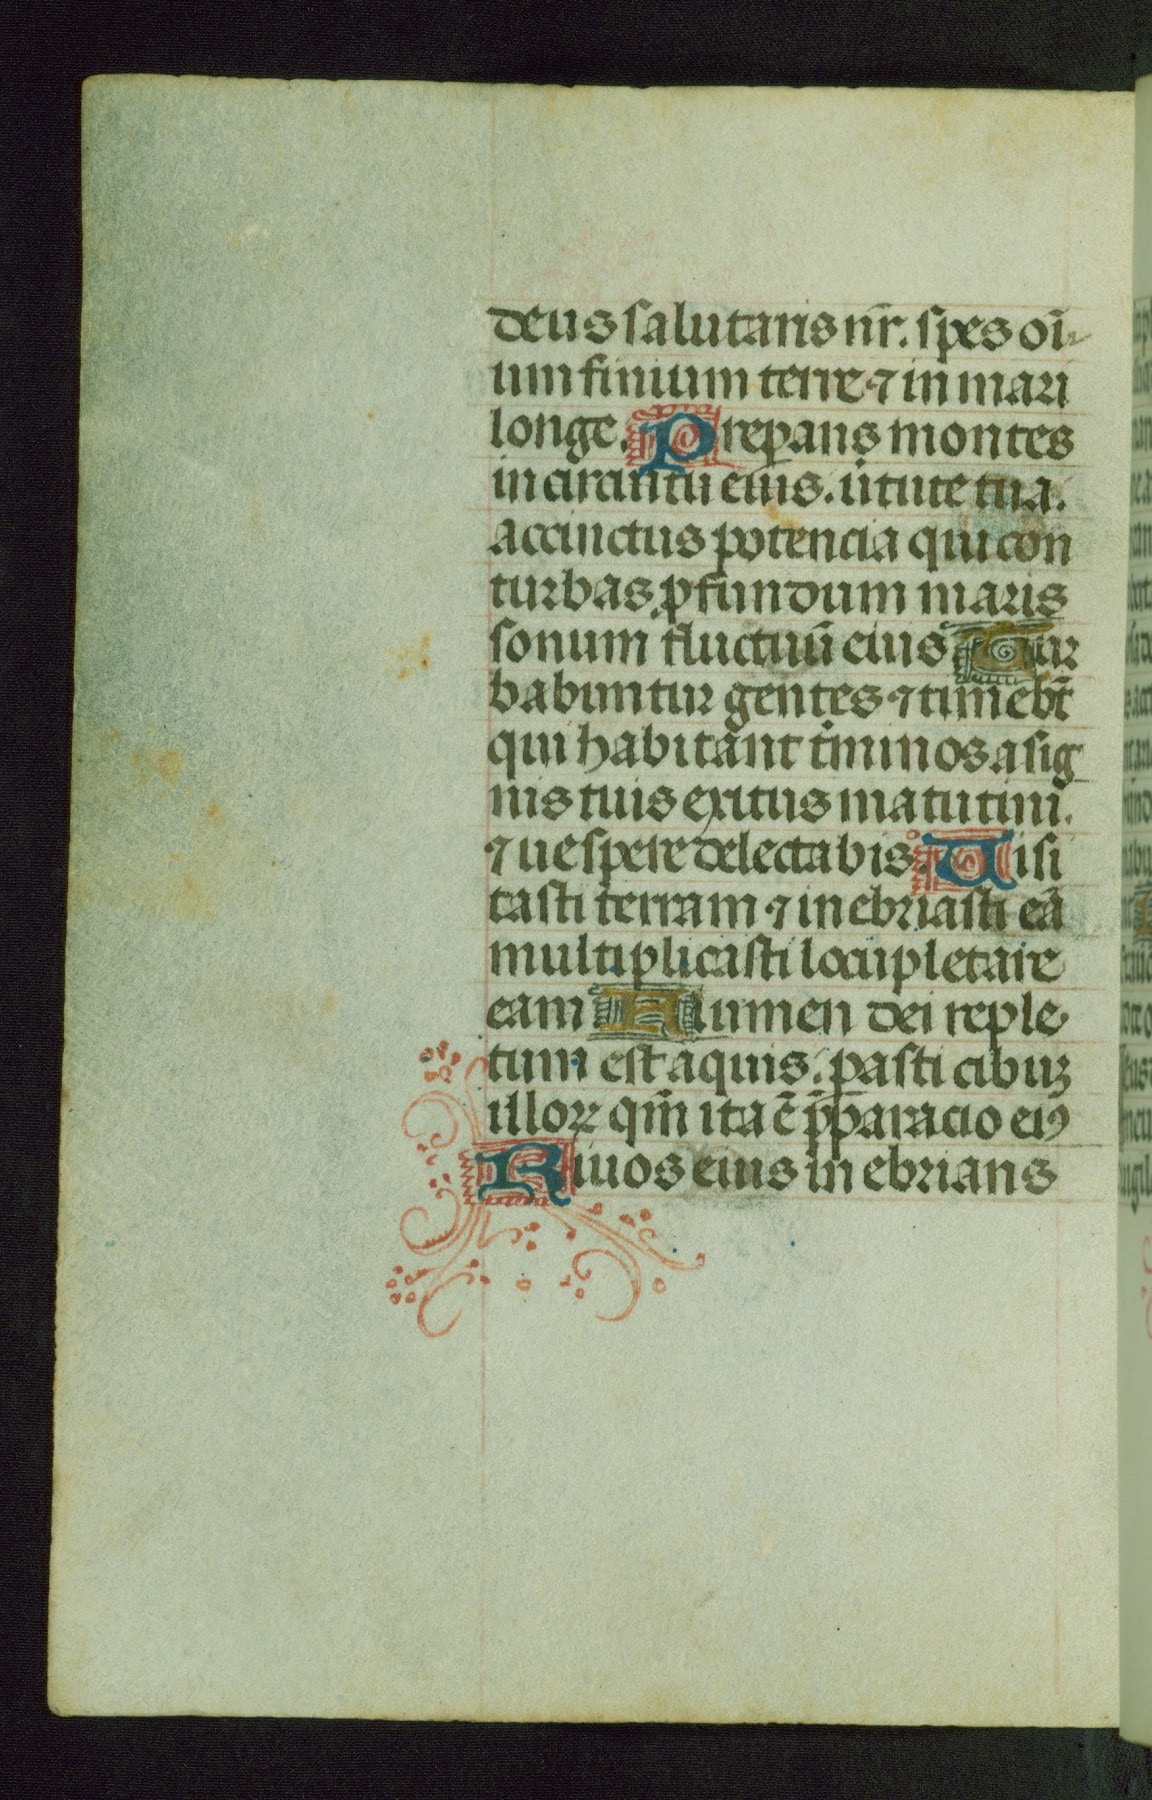 deus salutaris nr̄. spes oī-
um finium terre ⁊ in mari
longe. Prepans montes
in circuitu eius. ūtute tua.
accinctus potencia qui con
turbas ꝓfundum maris
sonum fluctuū eius Tur
babuntur gentes ⁊ timebt̄
qui habitant t̄minos a sig
nis tuis exitus matutini.
⁊ uespere delectabis. Uisi
tasti terram ⁊ inebriasti eā
multiplicasti locupletare
eam Flumen dei reple
tum est aquis. pasti cibuꝫ
illoꝝ qm̄ ita ē p̄paracio eiꝰ
Riuos eius in ebrians